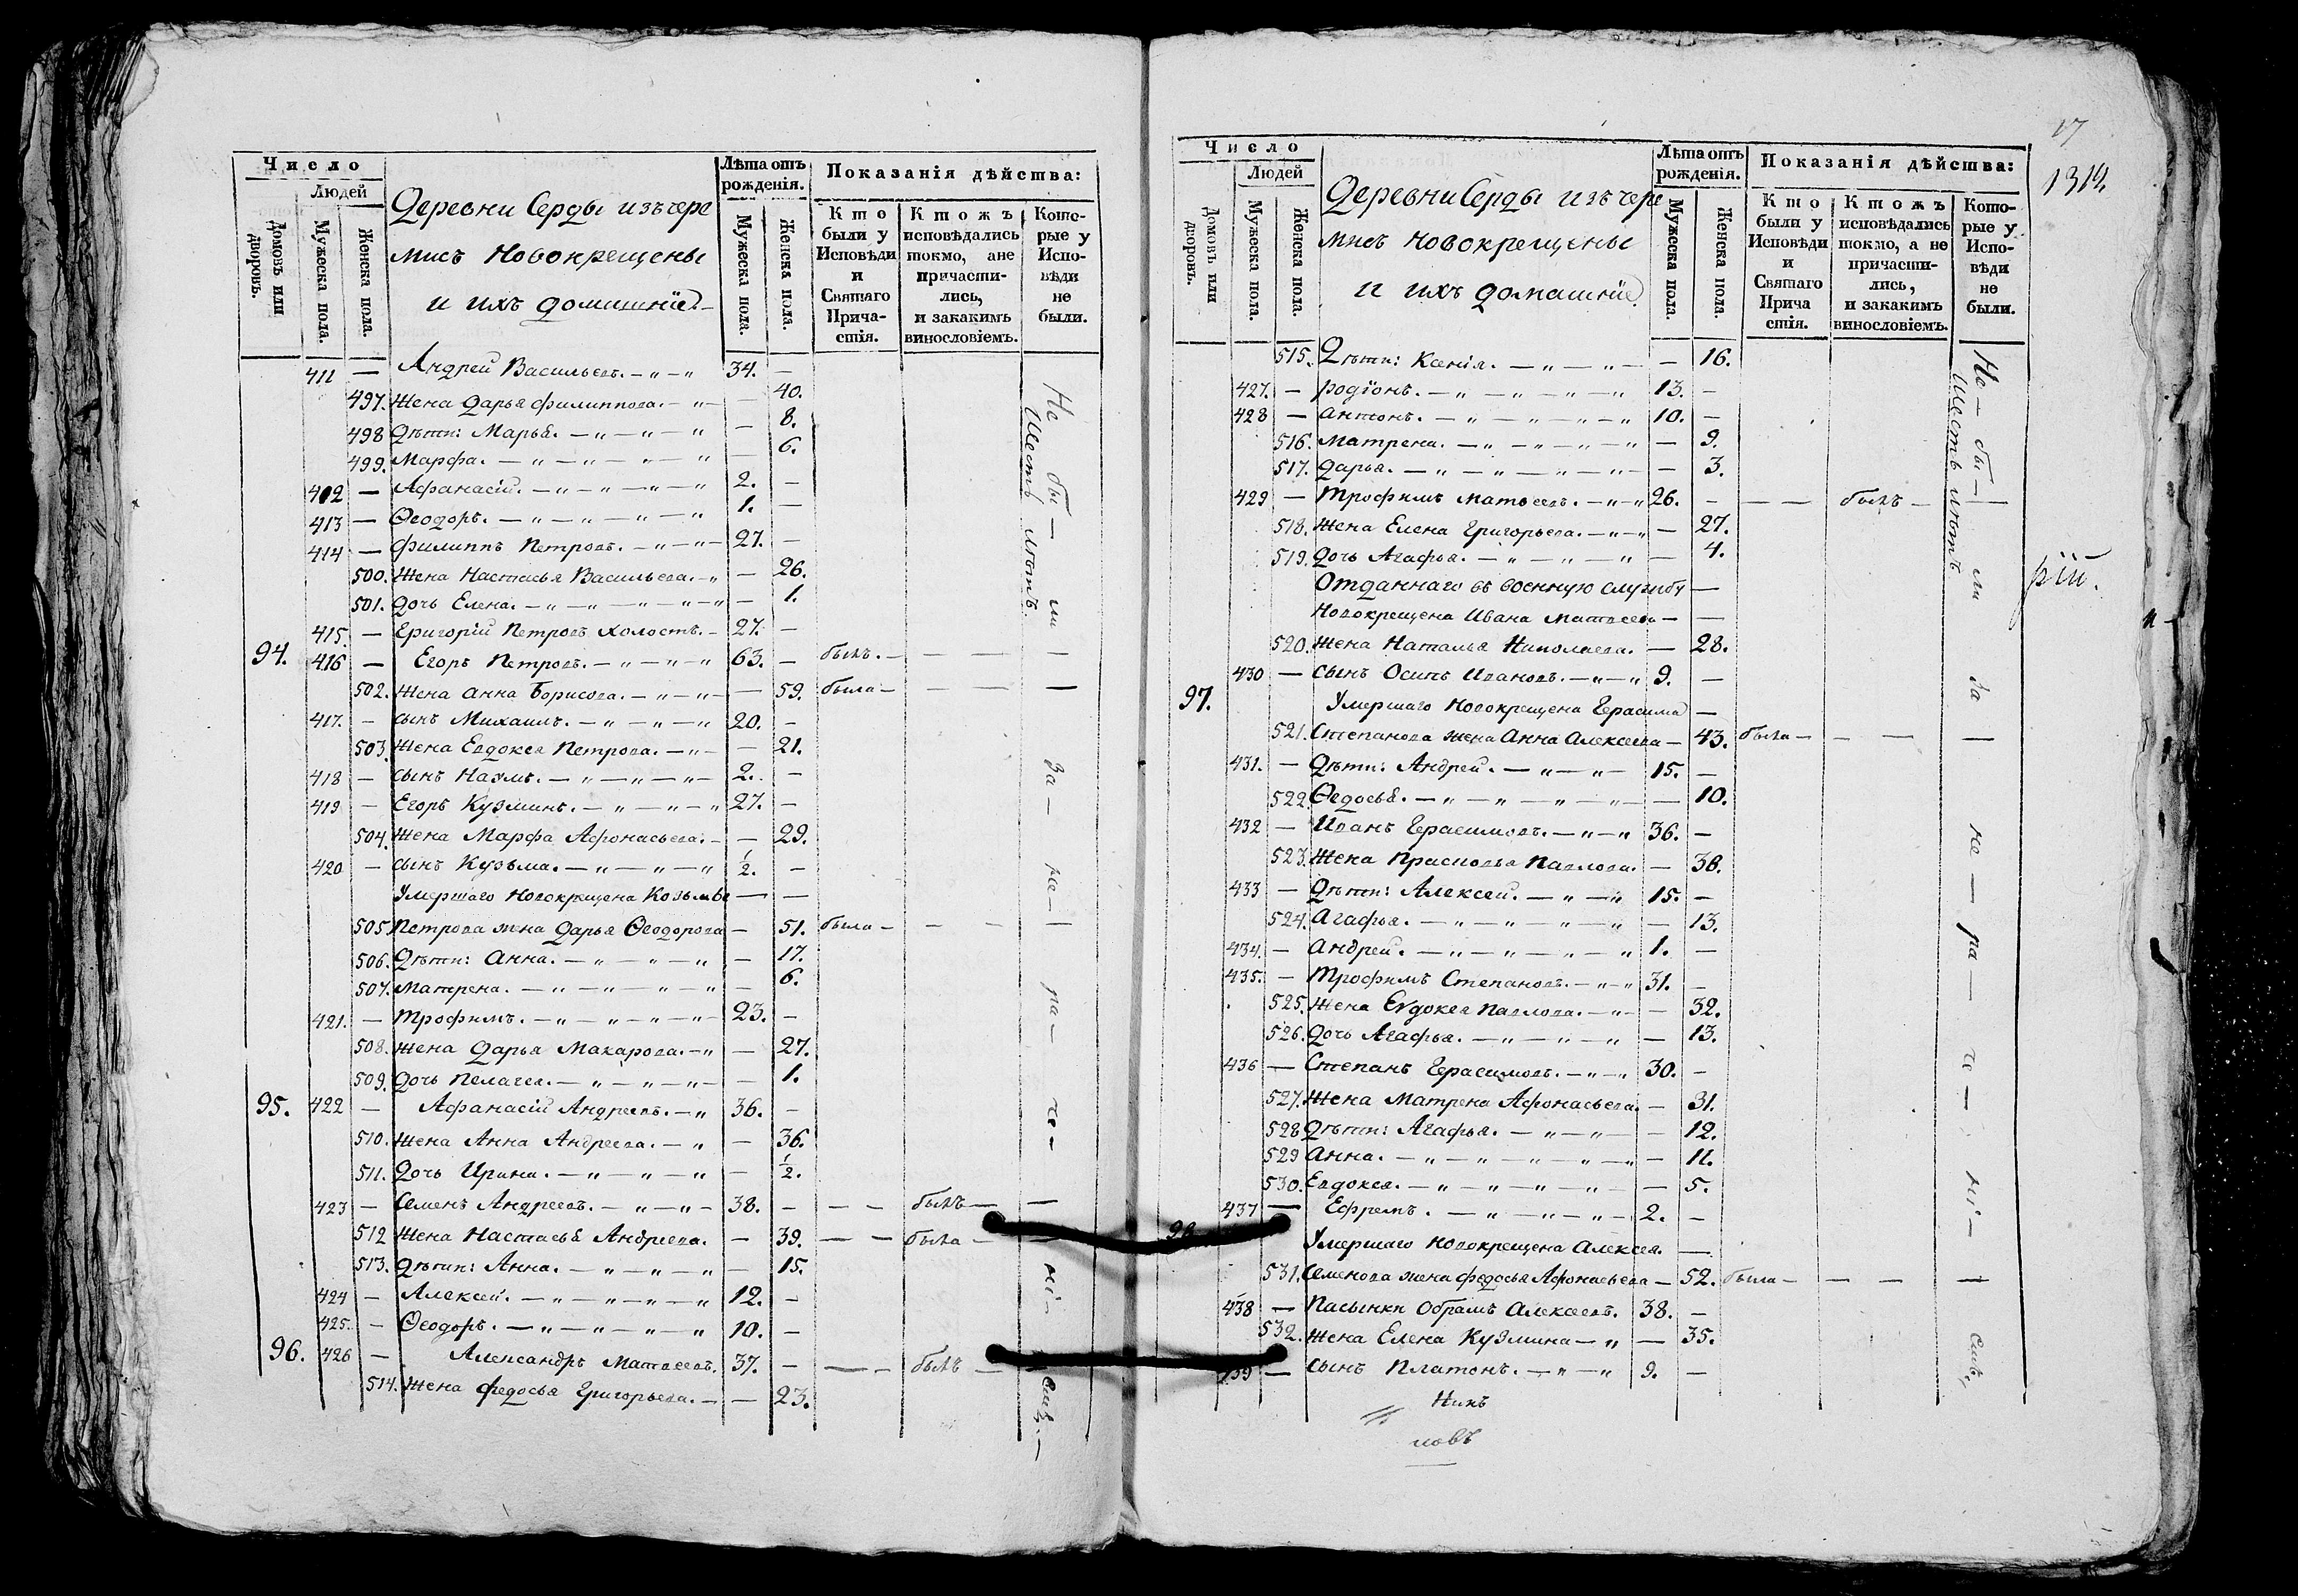 Число
Людей
Домовъ или дворовъ.
Мужеска пола.
Женска пола.
Деревни Серды изъ чере
мисъ Новокрещены
и ихъ домашнiе
Лѣта отъ рожденiя.
Мужеска пола.
Женска пола.
Показанiя дѣйства:
Кто были у Исповѣди и Святаго Прича-стiя.
Ктожъ исповѣдались токмо, ане причасти-лись, и закакимъ винословiемъ.
Кото-рые у Испо-вѣди не были.
411 — Андрей Васильевъ. 34. —
497. Жена Дарья Филиппова. — 40.
498 Дѣти: Марья. — 8.
499. Марфа. — 6.
412 — Афанасiй. 2. —
413 — Ѳеодоръ. 1. —
414 — Филиппъ Петровъ. 27. —
500. Жена Настасья Васильева. — 26.
501. Дочь Елена. — 1.
415. — Григорiй Петровъ холостъ. 27. —
94. 416 — Егоръ Петровъ. 63. — былъ. — — —
502. Жена Анна Борисова. — 59. была — — —
417. — сынъ Михаилъ. 20. —
503 Жена Евдокея Петрова. — 21.
418 — сынъ Наумъ. 2. —
419 — Егоръ Кузминъ. 27. —
504. Жена Марфа Афонасьева. — 29.
420 — сынъ Кузьма. 1/2. —
Умершаго Новокрещена Козьмы — —
505 Петрова жена Дарья Ѳеодорова — 51. была — — —
506. Дѣти: Анна. — 17.
507. Матрена. — 6.
421. — Трофимъ. 23. —
508. Жена Дарья Макарова. — 27.
509. Дочь Пелагея. — 1.
95. 422 — Афанасiй Андреевъ. 36. —
510. Жена Анна Андреева. — 36.
511. Дочь Ирина. — 1/2.
423 — Семенъ Андреевъ. 38. — — былъ —
512 Жена Настасья Андреева. — 39. — была —
513. Дѣти: Анна. — 15.
424 — Алексей. 12. —
425. — Ѳеодоръ. 10. —
96. 426 — Александръ Матвеевъ. 37. — — былъ —
514. Жена Федосья Григорьева. — 23.
Не бы — ли За — не — ра — че — нi — емъ. —
Шесть лѣтъ.
17
1314.
Число
Людей
Домовъ или дворовъ.
Мужеска пола.
Женска пола.
Деревни Серды изъ чере
мисъ Новокрещены
и ихъ домашнiе
Лѣта отъ рожденiя.
Мужеска пола.
Женска пола.
Показанiя дѣйства:
Кто были у Исповѣди и Святаго Прича стiя.
Ктожъ исповѣдались токмо, а не причасти-лись, и закакимъ винословiемъ.
Кото-рые у Испо-вѣди не были.
515. Дѣти: Ксенiя. — 16.
427. — Родiонъ. 13. —
428 — Антонъ. 10. —
516. Матрена. — 9.
517. Дарья. — 3.
429 — Трофимъ Матвеевъ. 26. — — былъ —
518. Жена Елена Григорьева. — 27.
519. Дочь Агафья. — 4.
Отданнаго въ военную службу —
Новокрещена Ивана Матвеева — —
520. Жена Наталья Николаева. — 28.
430 — сынъ Осипъ Ивановъ. 9. —
97. Умершаго Новокрещена Герасима —
521. Степанова жена Анна Алексеева — 43. была — — —
431. — Дѣти: Андрей. 15. —
522. Ѳедосья. — 10.
432 — Иванъ Герасимовъ. 36. —
523. Жена Прасковья Павлова. — 38.
433 — Дѣти: Алексей. 15. —
524. Агафья. — 13.
434. — Андрей. 1. —
435. — Трофимъ Степановъ. 31. —
525. Жена Евдокея Павлова. — 32.
526. Дочь Агафья. — 13.
436 — Степанъ Герасимовъ. 30. —
527. Жена Матрена Афонасьева. — 31.
528 Дѣти: Агафья. — 12.
529 Анна. — 11.
530. Евдокея. — 5.
437 — Ефремъ. 2. —
98 Умершаго Новокрещена Алексея. —
531. Семенова жена Федосья Афонасьева — 52. была — — —
438 — Пасынки Обрамъ Алексеевъ. 38. —
532. Жена Елена Кузмина — 35.
439 — сынъ Платонъ. 9. —
Не — бы — ли За не — ра — че — нi — емъ
Шесть лѣтъ
рiй.